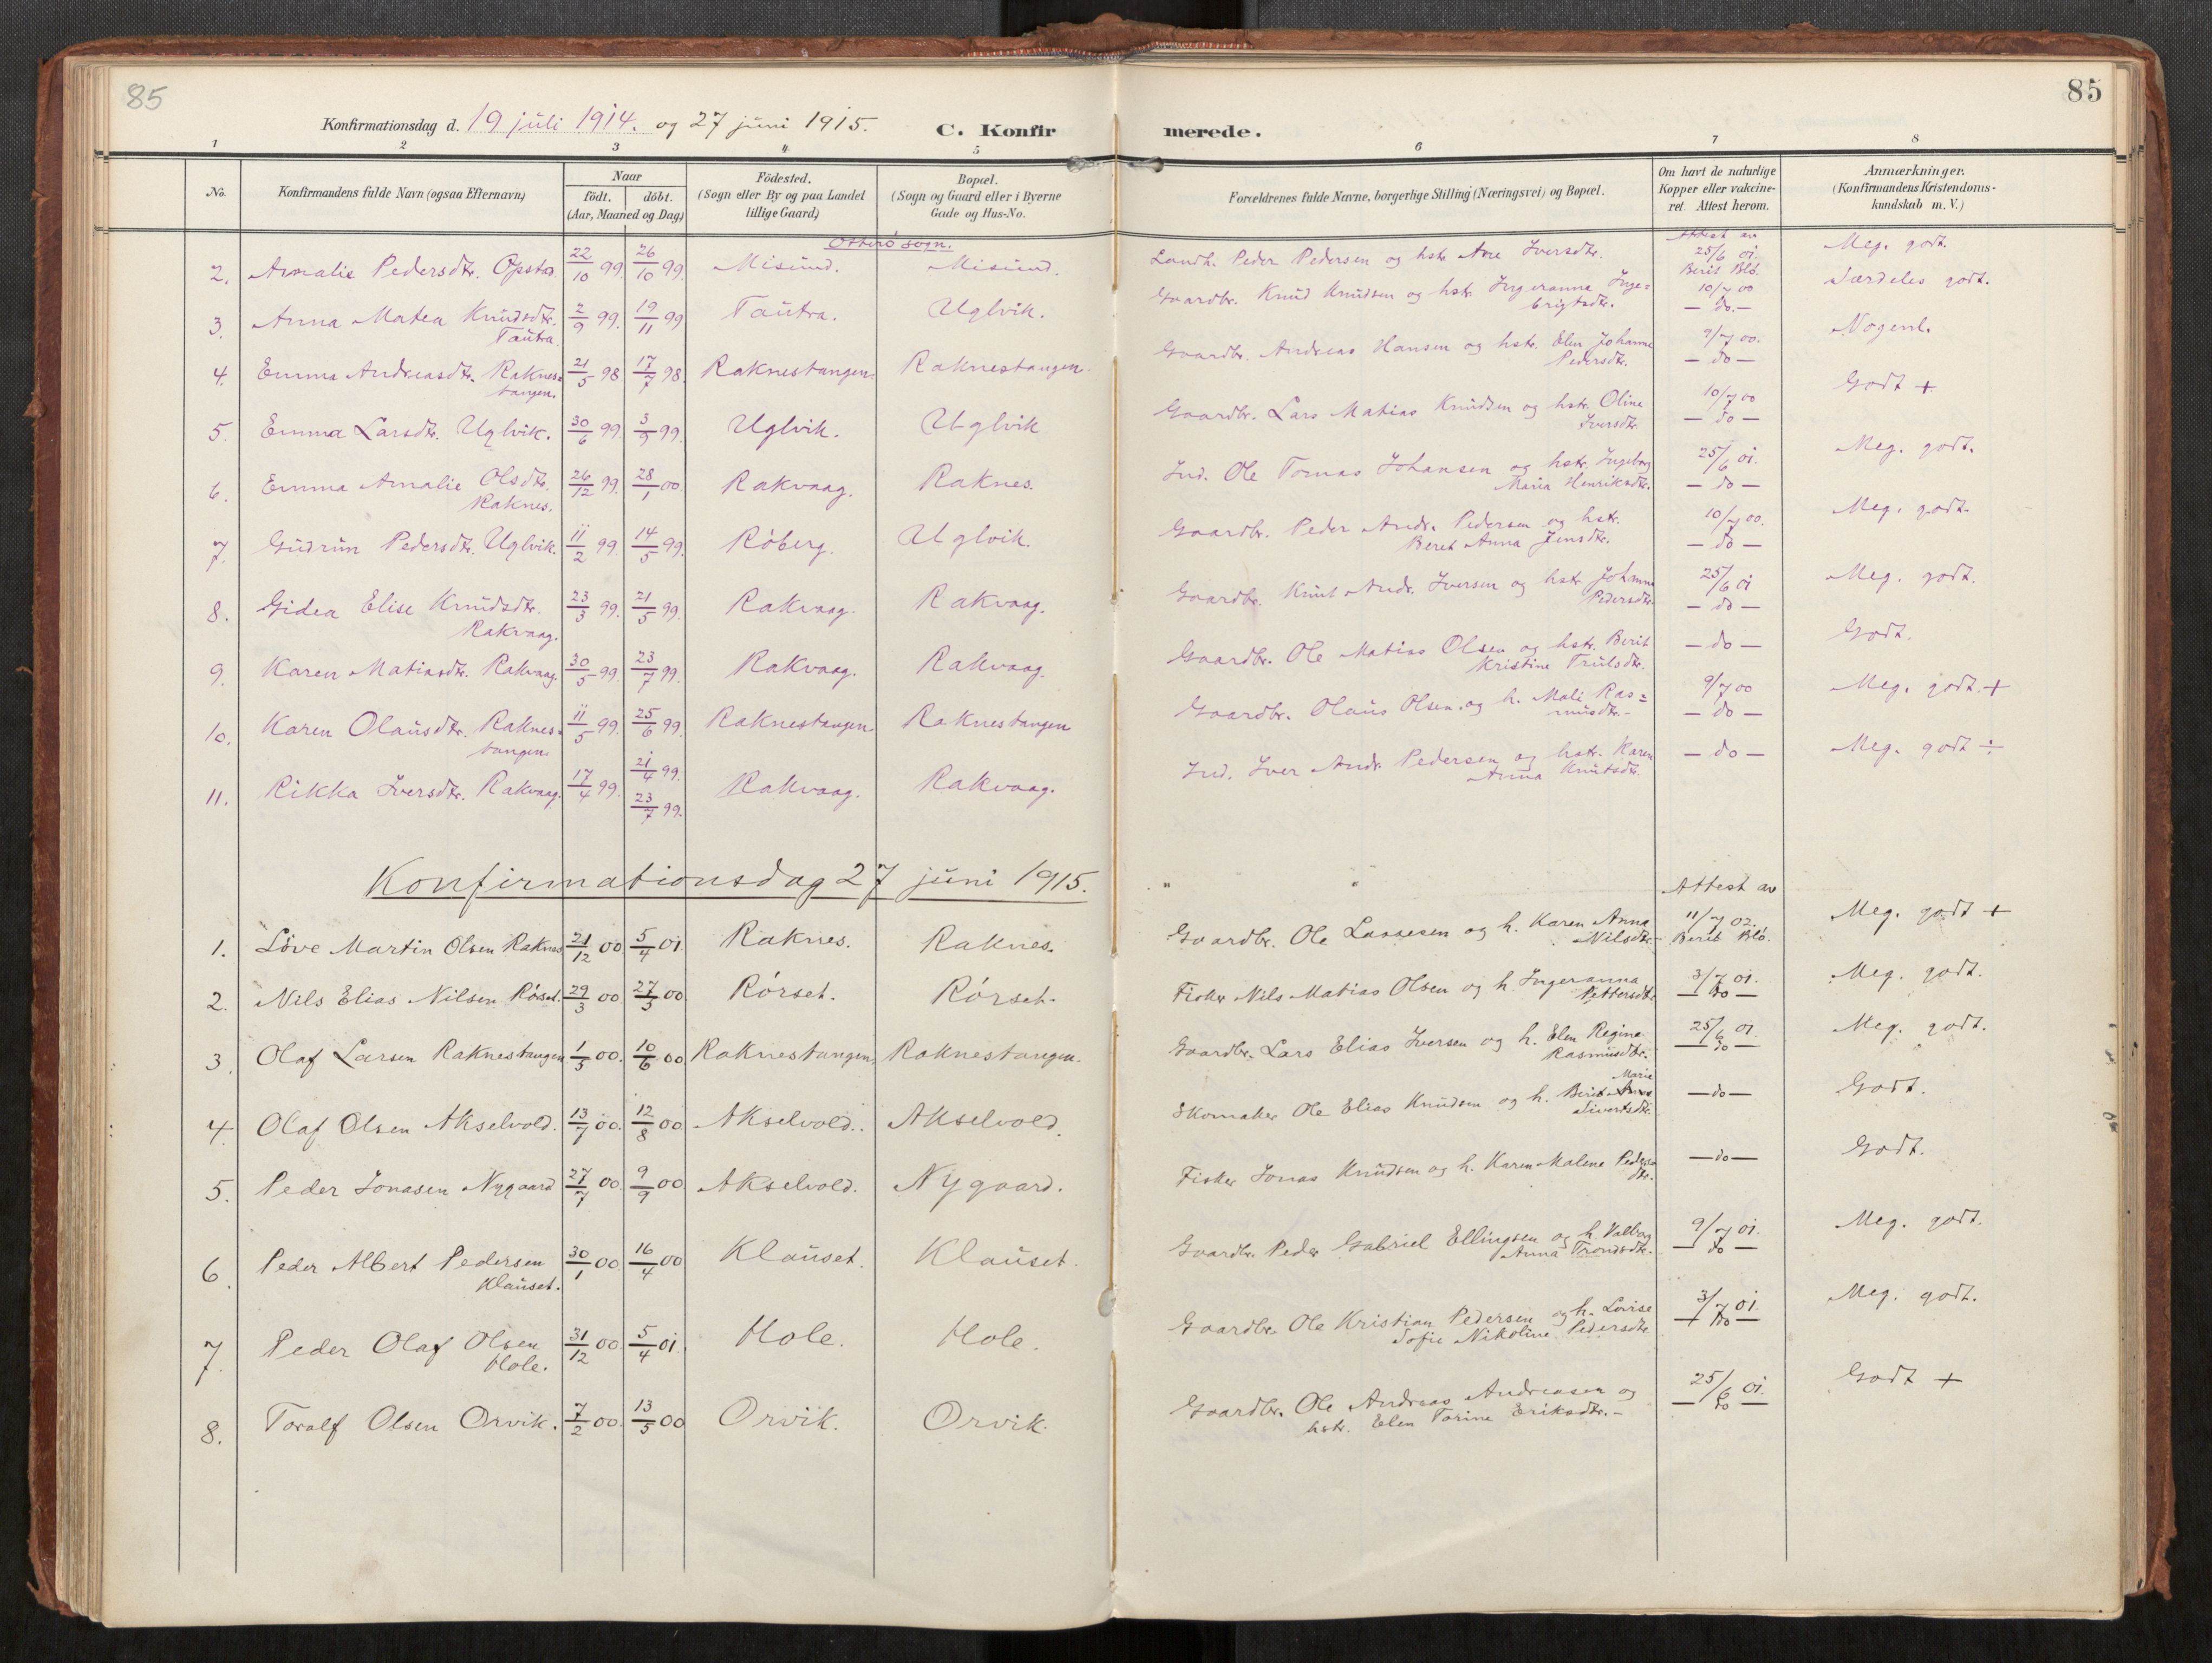 85
85
Konfirmationsdag d. 19 juli 1914. og 27 juni 1915.
C. Konfirmerede.
1 2 3 4 5 6 7 8
No.
Konfirmandens fulde Navn (ogsaa Efternavn)
Naar
født. døbt.
(Aar, Maaned og Dag)
Fødested.
(Sogn eller By og paa Landet
tillige Gaard)
Bopæl.
(Sogn og Gaard eller i Byerne
Gade og Hus-No.
Forældrenes fulde Navne, borgerlige Stilling (Næringsvei) og Bopæl.
Om havt de naturlige
Kopper eller vakcine-
ret. Attest herom.
Anmærkninger.
(Konfirmandens Kristendoms-
kundskab m. V.)
Otterö sogn.
Attest av
2. Amalie Pedersdtr. Opstad 22/10 99. 26/10 99. Misund. Misund. Landh. Peder Pedersen og hstr. Ane Iversdtr. 25/6 01. Meg. godt.
Berit Blö.
3. Anna Matea Knudsdtr. 2/9 99. 19/11 99 Tautra. Uglvik. Gaardbr. Knud Knudsen og hstr. Ingeranna Inge= 10/7 00 Særdeles godt.
Tautra. brigtsdtr. — do. —
4. Emma Andreasdtr. Raknes= 21/5 98. 17/7 98. Raknestangen. Raknestangen. Gaardbr. Andreas Hansen og hstr. Elen Johanna 9/7 00. Nogenl.
tangen. Pedersdtr. — do —
5. Emma Larsdtr. Uglvik. 30/6 99. 3/9 99. Uglvik. Uglvik Gaardbr. Lars Matias Knudsen og hstr. Oline 10/7 00 Godt +
Iversdtr. — do —
6. Emma Amalie Olsdtr. 26/12 99. 28/1 00. Rakvaag. Raknes. Ind. Ole Tomas Johansen og hstr. Ingeborg 25/6 01. Meg. godt.
Raknes. Maria Henriksdtr. — do —
7. Gudrun Pedersdtr. Uglvik. 11/2 99. 14/5 99. Röberg. Uglvik. Gaardbr. Peder Andr. Pedersen og hstr. 10/7 00. Meg. godt.
Beret Anna Jensdtr. — do —
8. Gidea Elise Knudsdtr. 23/3 99. 21/5 99. Rakvaag. Rakvaag. Gaardbr. Knut Andr. Iversen og hstr. Johanna 25/6 01 Meg. godt.
Rakvaag. Pedersdtr. — do —
9. Karen Matiasdtr. Rakvaag. 30/5 99. 23/7 99. Rakvaag. Rakvaag. Gaardbr. Ole Matias Olsen og hstr. Berit — do — Godt.
Kristine Trulsdtr.
10. Karen Olausdtr. Raknes= 11/5 99. 25/6 99. Raknestangen Raknestangen Gaardbr. Olaus Olsen og h. Mali Ras= 9/7 00 Meg. godt. +
tangen. musdtr. — do —
11. Rikka Iversdtr. Rakvaag. 17/4 99. 21/4 99. 23/7 99. Rakvaag. Rakvaag. Ind. Iver Andr. Pedersen og hstr. Karen — do — Meg. godt ÷
Anna Knutsdtr.
Konfirmationsdag 27 juni 1915.
Attest av
1. Löve Martin Olsen Raknes 21/12 00. 5/4 01. Raknes. Raknes. Gaardbr. Ole Lassesen og h. Karen Anna 11/7 02. Meg. godt +
Nilsdtr. Berit Blö.
2. Nils Elias Nilsen Rörset. 29/3 00. 27/5 00. Rörset. Rörset. Fisker Nils Matias Olsen og h. Ingeranna 3/7 01. Meg. godt.
Pettersdtr. — do —
3. Olaf Larsen Raknestangen 1/5 00. 10/6 00 Raknestangen. Raknestangen. Gaardbr. Lars Elias Iversen og h. Elen Regine 25/6 01. Meg. godt.
Rasmusdtr. — do —
4. Olaf Olsen Akselvold. 13/7 00. 12/8 00 Akselvold. Akselvold. Skomaker Ole Elias Knudsen og h. Berit Marie — do — Godt.
Sivertsdtr.
5. Peder Jonasen Nygaard 27/7 00. 9/9 00 Akselvold. Nygaard. Fisker Jonas Knudsen og h. Karen Malene Peders — do — Godt.
dtr.
6. Peder Albert Pedersen 30/1 00. 16/4 00 Klauset. Klauset. Gaardbr. Peder Gabriel Ellingsen og h. Valborg 9/7 01. Meg. godt.
Klauset. Anna Trondsdtr. — do —
7. Peder Olaf Olsen 31/12 00. 5/4 01. Hole. Hole. Gaardbr. Ole Kristian Pedersen og h. Lovise 3/7 01. Meg. godt.
Hole. Sofie Nikoline Pedersdtr. — do —
8. Toralf Olsen Orvik. 7/2 00. 13/5 00 Orvik. Orvik. Gaardbr. Ole Andreas Andreasen og 25/6 01. Godt +
hstr. Elen Torine Eriksdtr. — do —